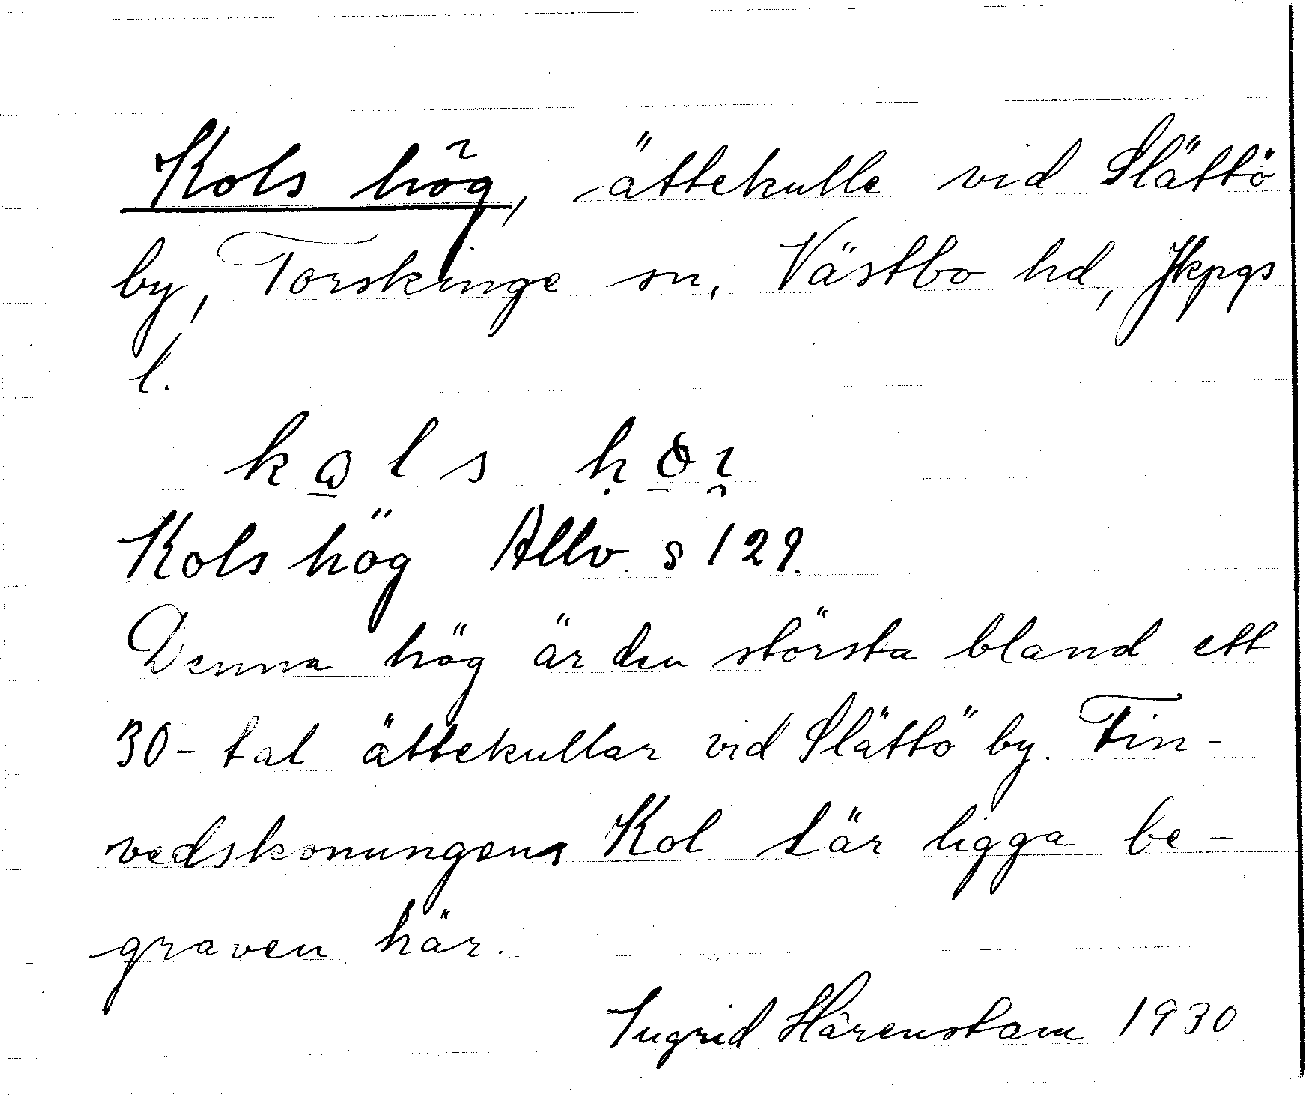 Kols hög, ättekulle vid Slättö
by, Torskinge sn, Västbo hd, Jkpgs
l.
Kols hög Allv. s 129.
Denna hög är den största bland ett
30-tal ättekullar vid Slättö by. Fin-
vedskonungen Kol lär ligga be-
graven här.
Ingrid Härenstam 1930